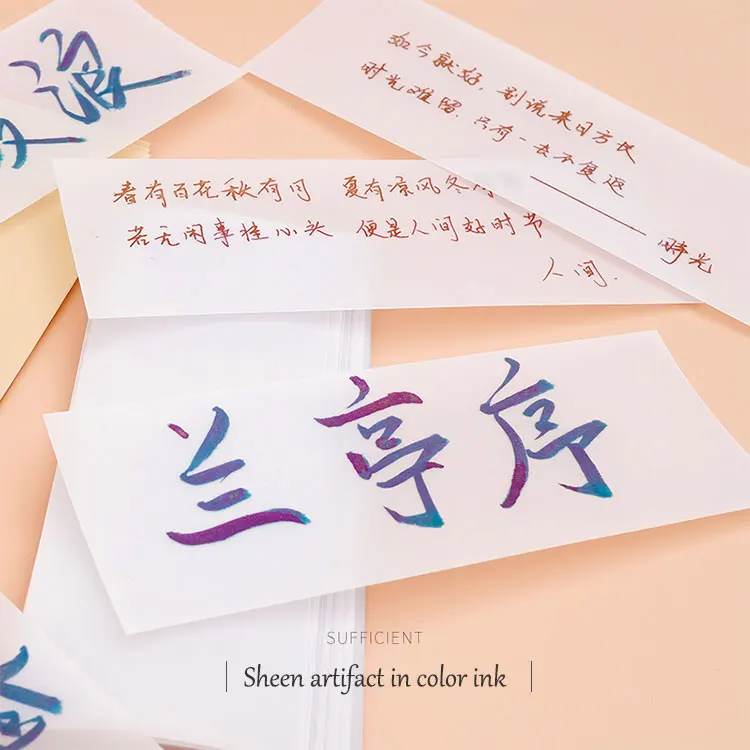 浪
如今就好，别说来日方长
时光难留，只有一去不复返
时光
春有百花秋有月 夏有凉风冬
若无闲事挂心头 便是人间好时节
人间.
兰亭序
SUFFICIENT
Sheen artifact in color ink